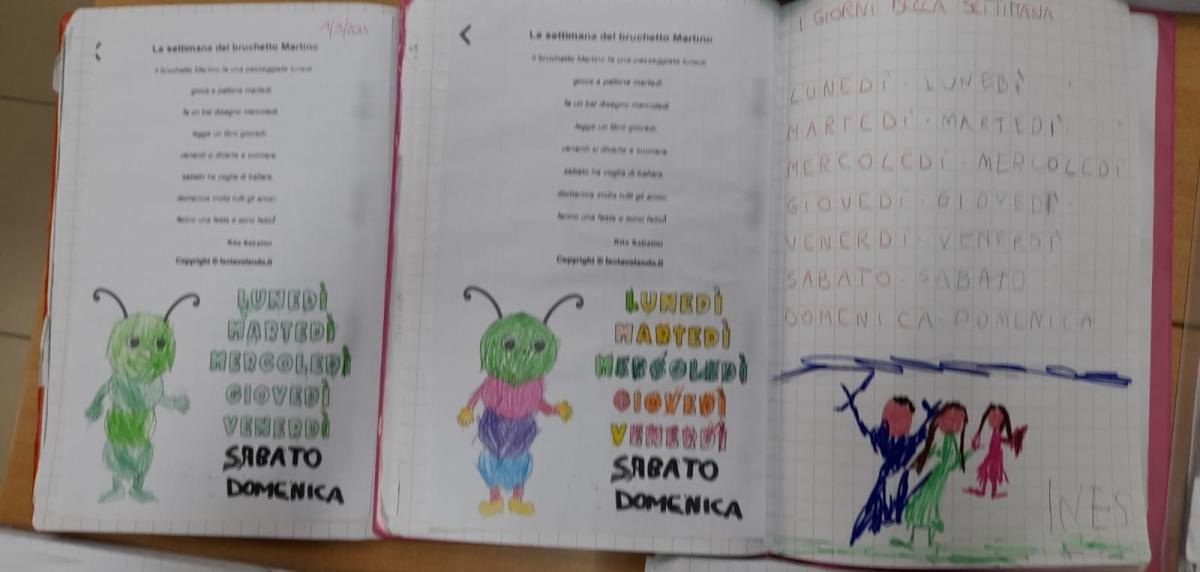 1/3/2023
La settimana del bruchetto Martino
Il bruchetto Martino fa una passeggiata lunedì,
gioca a pallone martedì,
fa un bel disegno mercoledì,
legge un libro giovedì,
venerdì si diverte a suonare,
sabato ha voglia di ballare,
domenica invita tutti gli amici:
fanno una festa e sono felici!
Rita Sabatini
Copyright © fantavolando.it
LUNEDÌ
MARTEDÌ
MERCOLEDÌ
GIOVEDÌ
VENERDÌ
SABATO
DOMENICA
La settimana del bruchetto Martino
Il bruchetto Martino fa una passeggiata lunedì,
gioca a pallone martedì,
fa un bel disegno mercoledì,
legge un libro giovedì,
venerdì si diverte a suonare,
sabato ha voglia di ballare,
domenica invita tutti gli amici:
fanno una festa e sono felici!
Rita Sabatini
Copyright © fantavolando.it
LUNEDÌ
MARTEDÌ
MERCOLEDÌ
GIOVEDÌ
VENERDÌ
SABATO
DOMENICA
I GIORNI DELLA SETTIMANA
LUNEDÌ · LUNEDÌ
MARTEDÌ · MARTEDÌ
MERCOLEDÌ · MERCOLEDÌ
GIOVEDÌ · GIOVEDÌ
VENERDÌ · VENERDÌ
SABATO · SABATO
DOMENICA · DOMENICA
INES